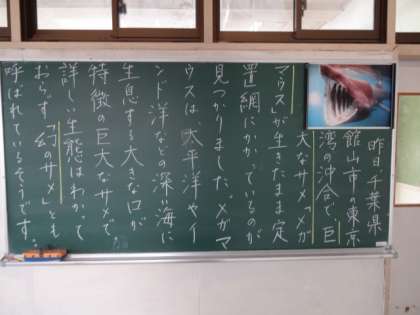 昨日、千葉県
館山市の東京
湾の沖合で、巨
大なサメ「メガ
マウス」が生きたまま定
置網にかかっているのが
見つかりました。メガマ
ウスは、太平洋やイ
ンド洋などの深い海に
生息する大きな口が
特徴の巨大なサメで、
詳しい生態はわかって
おらず「幻のサメ」とも
呼ばれているそうです。